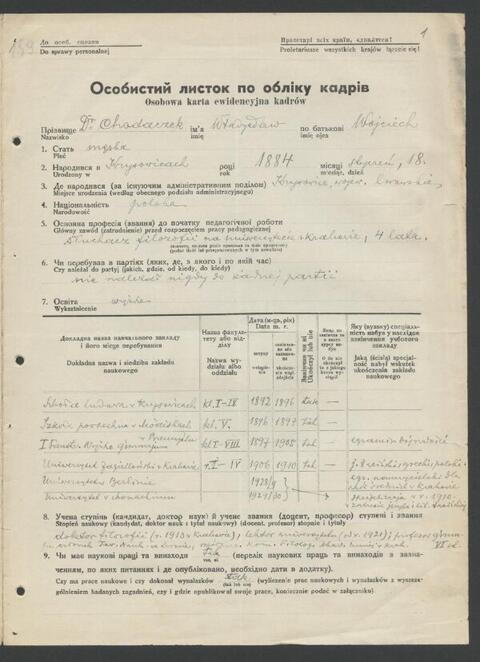 189
1
До особ. справи
Do sprawy personalnej
Пролетарі всіх країн, єднайтеся!
Proletariusze wszystkich krajów łączcie się!
Особистий листок по обліку кадрів
Osobowa karta ewidencyjna kadrów
Прізвище Dr Chodaczek ім'я Władysław по батькові Wojciech
Nazwisko imię imię ojca
1. Стать męska
Płeć
2. Народився в Krysowicach році 1884 місяці styczeń, 18.
Urodzony w rok miesiąc, dzień
3. Де народився (за існуючим адміністративним поділом) Krysowice, wojew. lwowskie
Miejsce urodzenia (według obecnego podziału administracyjnego)
4. Національність polska
Narodowość
5. Основна професія (звання) до початку педагогічної роботи
Główny zawód (zatrudnienie) przed rozpoczęciem pracy pedagogicznej
Słuchacz filozofii na uniwersytecie w Krakowie, 4 lata.
6. Чи перебував в партіях (яких, де, з якого і по який час)
Czy należał do partyj (jakich, gdzie, od kiedy, do kiedy)
nie należał nigdy do żadnej partii
7. Освіта wyższa
Wykształcenie
Докладна назва навчального закладу і його місце перебування
Dokładna nazwa i siedziba zakładu naukowego
Назва факультету або відділу
Nazwa wydziału albo oddziału
Дата (м-ць, рік)
Data m. r.
вступу
Закінчив чи ні
Ukończył lub nie
Яку (вузьку) спеціальність набув у наслідок закінчення учбового закладу
Jaką (ścisłą) specjalność nabył wskutek ukończenia zakładu naukowego
Szkoła ludowa w Krysowicach kl. I-IV 1892 1896 tak —
Szkoła powszechna w Mościskach kl. V 1896 1897 tak —
w Przemyślu
I Państw. Wyższe gimnazjum kl. I-VIII 1897 1905 tak — egzamin dojrzałości
Uniwersytet Jagielloński w Krakowie r. I-IV 1906 1910 tak —
Uniwersytet Berlin 1928/9
Uniwersytet w Monachium 1929/30
8. Учена ступінь (кандидат, доктор наук) й учене звання (доцент, професор) ступені і звання
Stopień naukowy (kandydat, doktor nauk) i tytuł naukowy (docent, profesor) stopnie i tytuły
doktor filozofii (r. 1913 w Krakowie), lektor uniwersytetu (od r. 1921), profesor gimn.
9. Чи має наукові праці та винаходи tak (перелік наукових праць та винаходів з зазначенням, по яких питаннях і де опубліковано, якщо необхідно, дати в додатку).
Czy ma prace naukowe i czy dokonał wynalazków tak (wyliczenie prac naukowych i wynalazków z wyszczególnieniem badanych zagadnień, czy i gdzie opublikował swoje prace, koniecznie podać w załączniku).